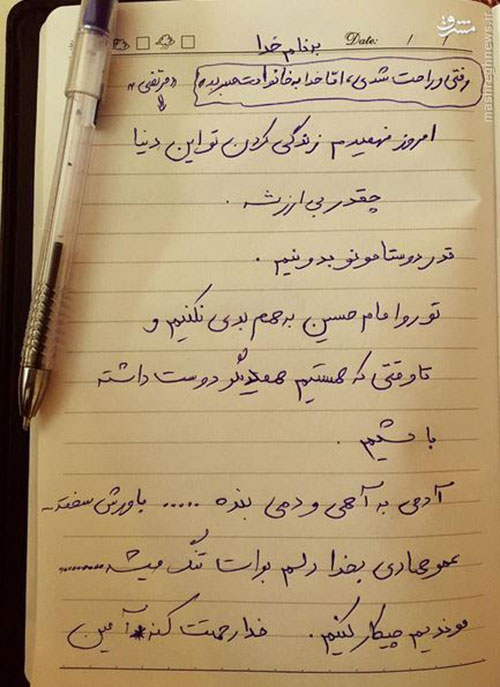 بنام خدا
Date: / /
رفتی و راحت شدی، اما خدا به خانوادت صبر بده «مرتضی»
امروز فهمیدم زندگی کردن تو این دنیا
چقدر بی ارزشه.
قدر دوستامونو بدونیم.
تورو امام حسین بهم بدی نکنیم و
تا وقتی که هستیم همدیگر دوست داشته
باشیم.
آدمی به آهی و دمی بنده ..... باورش سخته..
عمو هادی بخدا دلم براتا تنگ میشه........
موندیم چیکار کنیم. خدا رحمتت کنه آمین
مشرق
mashreghnews.ir